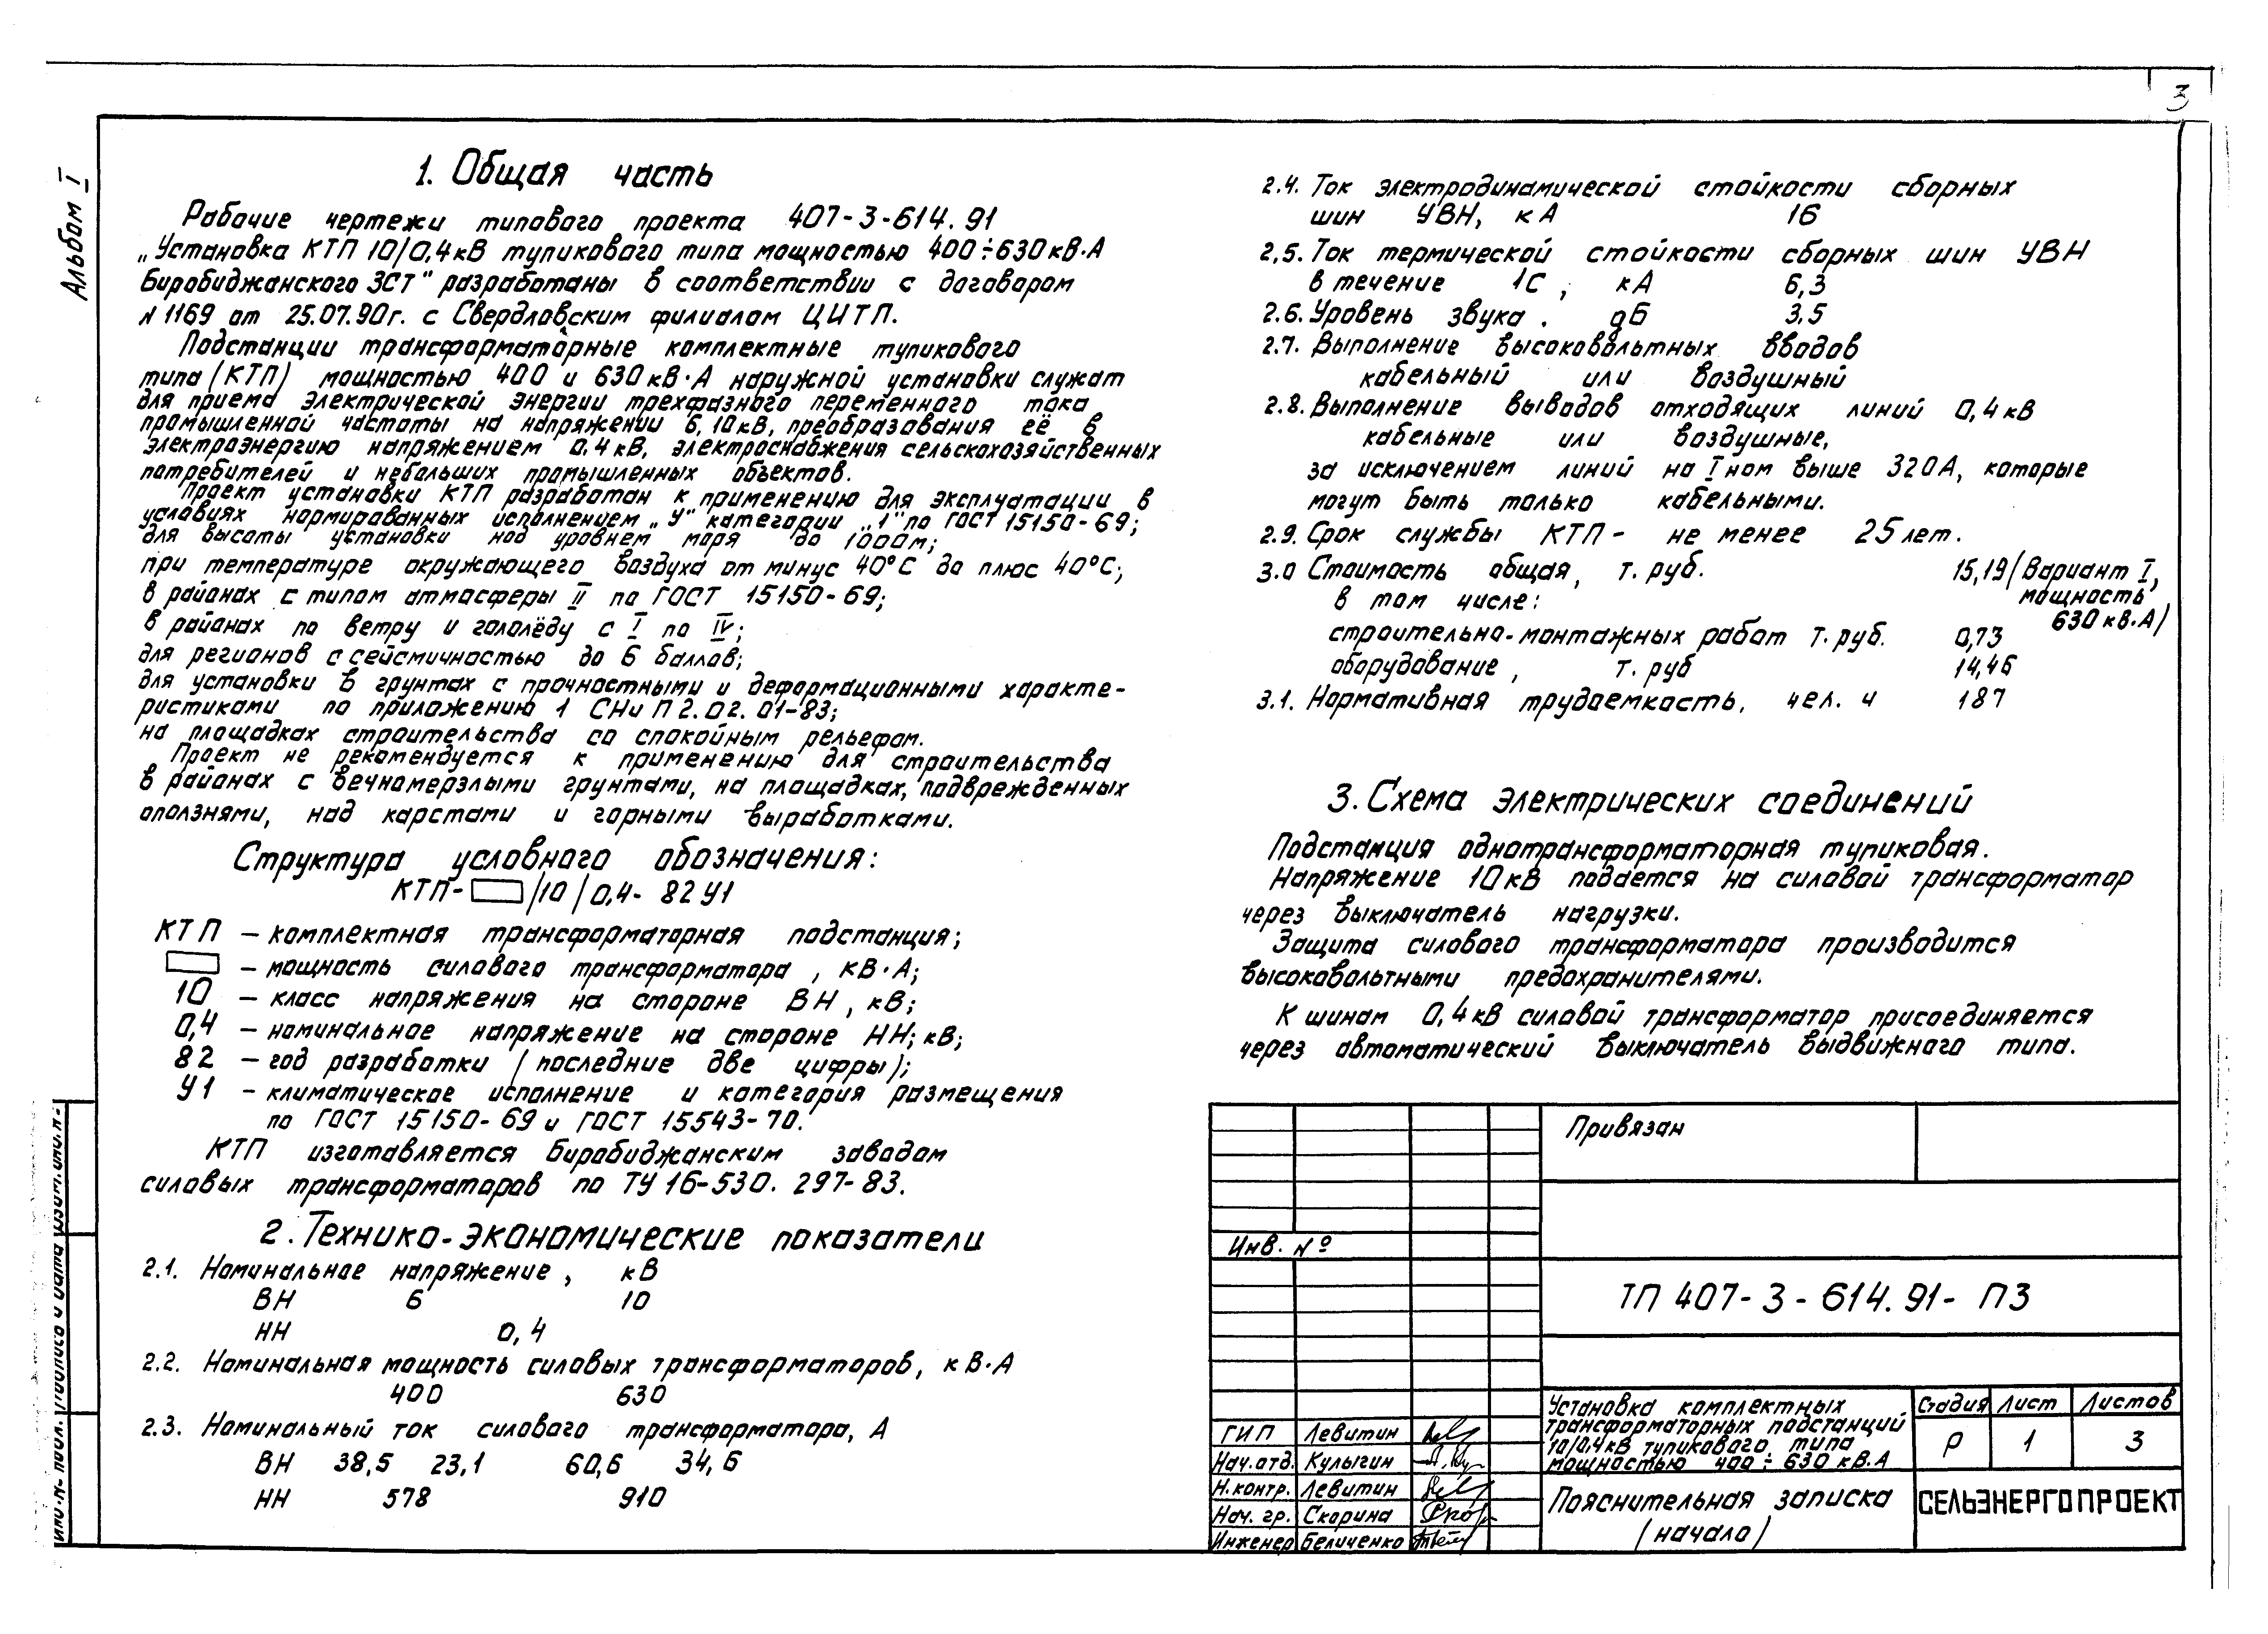 3
Альбом I
1. Общая часть
Рабочие чертежи типового проекта 407-3-614.91
„Установка КТП 10/0,4кВ тупикового типа мощностью 400÷630кВ·А
Биробиджанского ЗСТ" разработаны в соответствии с договором
N 1169 от 25.07.90г. с Свердловским филиалом ЦИТП.
Подстанции трансформаторные комплектные тупикового
типа (КТП) мощностью 400 и 630кВ·А наружной установки служат
для приема электрической энергии трехфазного переменного тока
промышленной частоты на напряжении 6,10кВ, преобразования её в
электроэнергию напряжением 0.4кВ, электроснабжения сельскохозяйственных
потребителей и небольших промышленных объектов.
Проект установки КТП разработан к применению для эксплуатации в
условиях нормированных исполнением „У" категории „1" по ГОСТ 15150-69;
для высоты установки над уровнем моря до 1000м;
при температуре окружающего воздуха от минус 40°С до плюс 40°С;
в районах с типом атмосферы II по ГОСТ 15150-69;
в районах по ветру и гололёду с I по IV;
для регионов с сейсмичностью до 6 баллов;
для установки в грунтах с прочностными и деформационными характе-
ристиками по приложению 1 СНиП 2.02.01-83;
на площадках строительства со спокойным рельефом.
Проект не рекомендуется к применению для строительства
в районах с вечномерзлыми грунтами, на площадках, подврежденных
оползнями, над карстами и горными выработками.
Структура условного обозначения:
КТП- /10/0,4- 82 У1
КТП – комплектная трансформаторная подстанция;
– мощность силового трансформатора, кВ·А;
10 – класс напряжения на стороне ВН, кВ;
0,4 – номинальное напряжение на стороне НН; кВ;
82 – год разработки (последние две цифры);
У1 – климатическое исполнение и категория размещения
по ГОСТ 15150-69 и ГОСТ 15543-70.
КТП изготавляется Биробиджанским заводом
силовых трансформаторов по ТУ 16-530. 297-83.
2. Технико-экономические показатели
2.1. Номинальное напряжение, кВ
ВН 6 10
НН 0,4
2.2. Номинальная мощность силовых трансформаторов, кВ·А
400 630
2.3. Номинальный ток силового трансформатора, А
ВН 38,5 23,1 60,6 34,6
НН 578 910
2.4. Ток электродинамической стойкости сборных
шин УВН, кА 16
2.5. Ток термической стойкости сборных шин УВН
в течение 1С, кА 6,3
2.6. Уровень звука. дБ 3.5
2.7. Выполнение высоковольтных вводов
кабельный или воздушный
2.8. Выполнение выводов отходящих линий 0,4кВ
кабельные или воздушные,
за исключением линий на Iном выше 320А, которые
могут быть только кабельными.
2.9. Срок службы КТП – не менее 25 лет.
3.0 Стоимость общая, т. руб. 15,19 (Вариант I,
в том числе: мощность
630 кВ·А)
строительно-монтажных работ т. руб. 0,73
оборудование, т. руб 14,46
3.1. Нормативная трудоемкость, чел. ч 187
3. Схема электрических соединений
Подстанция однотрансформаторная тупиковая.
Напряжение 10кВ подается на силовой трансформатор
через выключатель нагрузки.
Защита силового трансформатора производится
высоковольтными предохранителями.
К шинам 0,4кВ силовой трансформатор присоединяется
через автоматический выключатель выдвижного типа.
Привязан
Инв. №
ТП 407-3-614.91- ПЗ
Установка комплектных
трансформаторных подстанций
10/0,4кВ тупикового типа
мощностью 400÷630 кВ.А
Стадия Лист Листов
Р 1 3
ГИП Левитин
Нач.отд. Кулыгин
Н.контр. Левитин
Нач. гр. Скорина
Инженер Беличенко
Пояснительная записка
(начало)
СЕЛЬЭНЕРГОПРОЕКТ
Инв.N подл. Подпись и дата Взам.инв.N